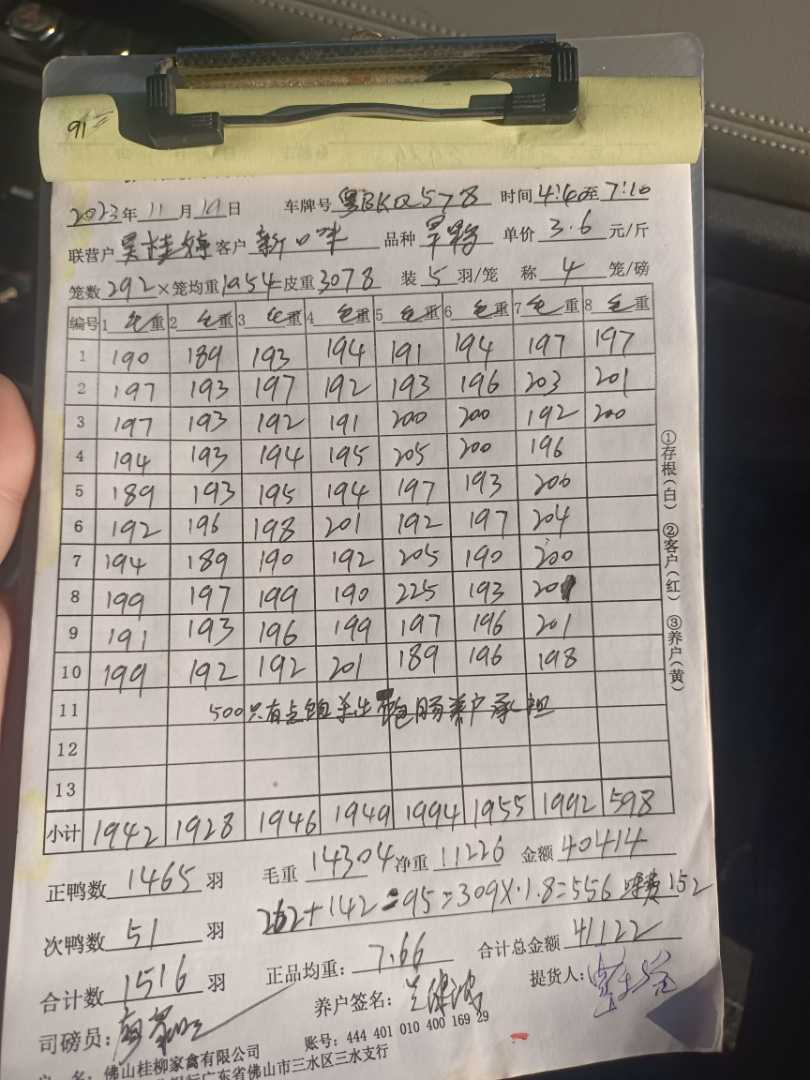 91
2023年11月19日 车牌号 粤BKQ578 时间4:40至7:10
联营户 吴桂婷 客户 新口味 品种 单价 3.6 元/斤
笼数292×笼均重1054皮重3078 装5羽/笼 称4笼/磅
编号 1 毛重 2 毛重 3 毛重 4 毛重 5 毛重 6 毛重 7 毛重 8 毛重
1 190 189 193 194 191 194 197 197
2 197 193 197 192 193 196 203 201
3 197 193 192 191 200 200 192 200
4 194 193 194 195 205 200 196
5 189 193 195 194 197 193 200
6 192 196 198 201 192 197 204
7 194 189 190 192 205 190 200
8 199 197 199 190 225 193 201
9 191 193 196 199 197 196 201
10 199 192 192 201 189 196 198
11 500只有点 肠养户承担
12
13
小计 1942 1928 1946 1949 1994 1955 1992 598
正鸭数 1465 羽 毛重 14304 净重 11226 金额 40414
262+142-95=309×1.8=556 152
次鸭数 51 羽
合计数 1516 羽 正品均重: 7.66 合计总金额 41122
司磅员: 养户签名: 提货人:
户 名: 佛山桂柳家禽有限公司 账号: 444 401 010 400 169 29
银行广东省佛山市三水区三水支行
①存根(白) ②客户(红) ③养户(黄)